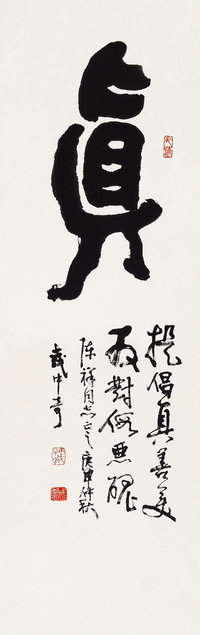 眞
提倡真善美
反對假惡醜
陈祥同志正之庚申仲秋
武中奇